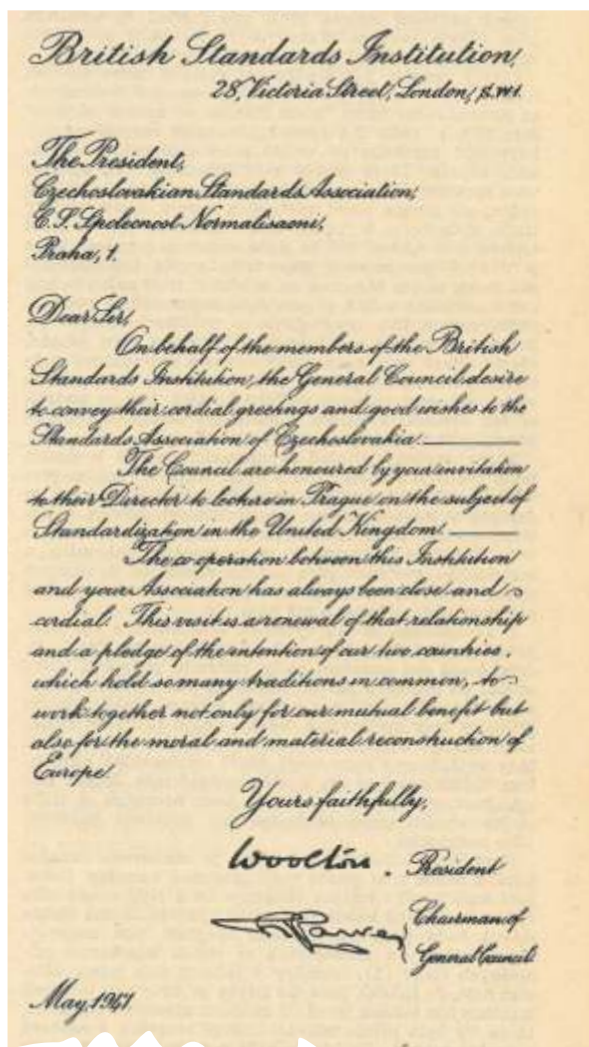 British Standards Institution,
28, Victoria Street, London, S.W.1.
The President,
Czechoslovakian Standards Association,
C.S. Spolecnost Normalisacni,
Praha, 1.
Dear Sir,
On behalf of the members of the British
Standards Institution, the General Council desire
to convey their cordial greetings and good wishes to the
Standards Association of Czechoslovakia.
The Council are honoured by your invitation
to their Director to lecture in Prague on the subject of
Standardization in the United Kingdom.
The co-operation between this Institution
and your Association has always been close and
cordial. This visit is a renewal of that relationship
and a pledge of the intention of our two countries,
which hold so many traditions in common, to
work together not only for our mutual benefit but
also for the moral and material reconstruction of
Europe.
Yours faithfully,
Woolton. President
Chairman of
General Council.
May, 1947